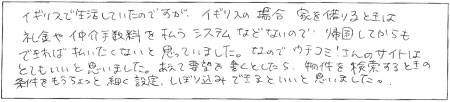 イギリスで生活していたのですが、イギリスの場合 家を借りるときは
礼金や仲介手数料を払うシステムなどないので、帰国してからも
できれば払いたくないと思っていました。なのでウチコミ!さんのサイトは
とてもいいと思いました。あえて要望を書くとしたら、物件を検索するときの
条件をもうちょっと細く設定、しぼり込みできるといいと思いました。